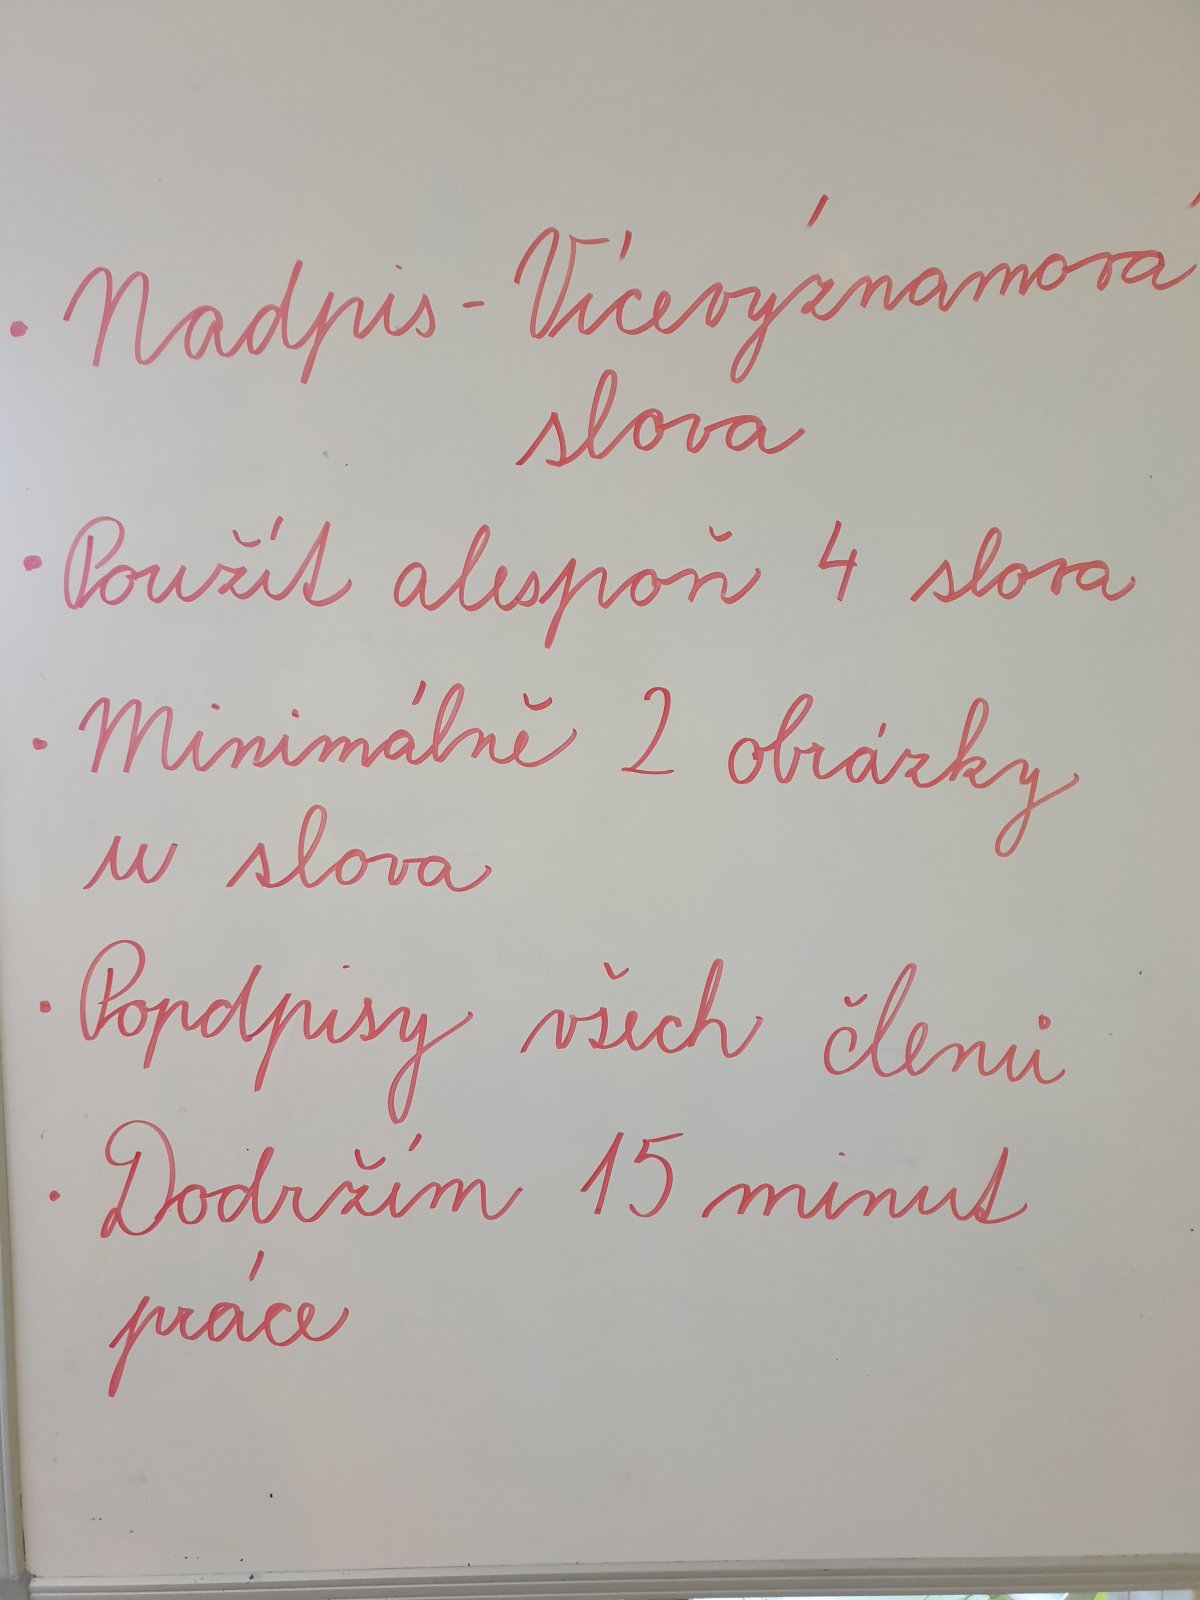 • Nadpis - Vícevýznamová
slova
• Použít alespoň 4 slova
• Minimálně 2 obrázky
u slova
• Popdpisy všech členů
• Dodržím 15 minut
práce